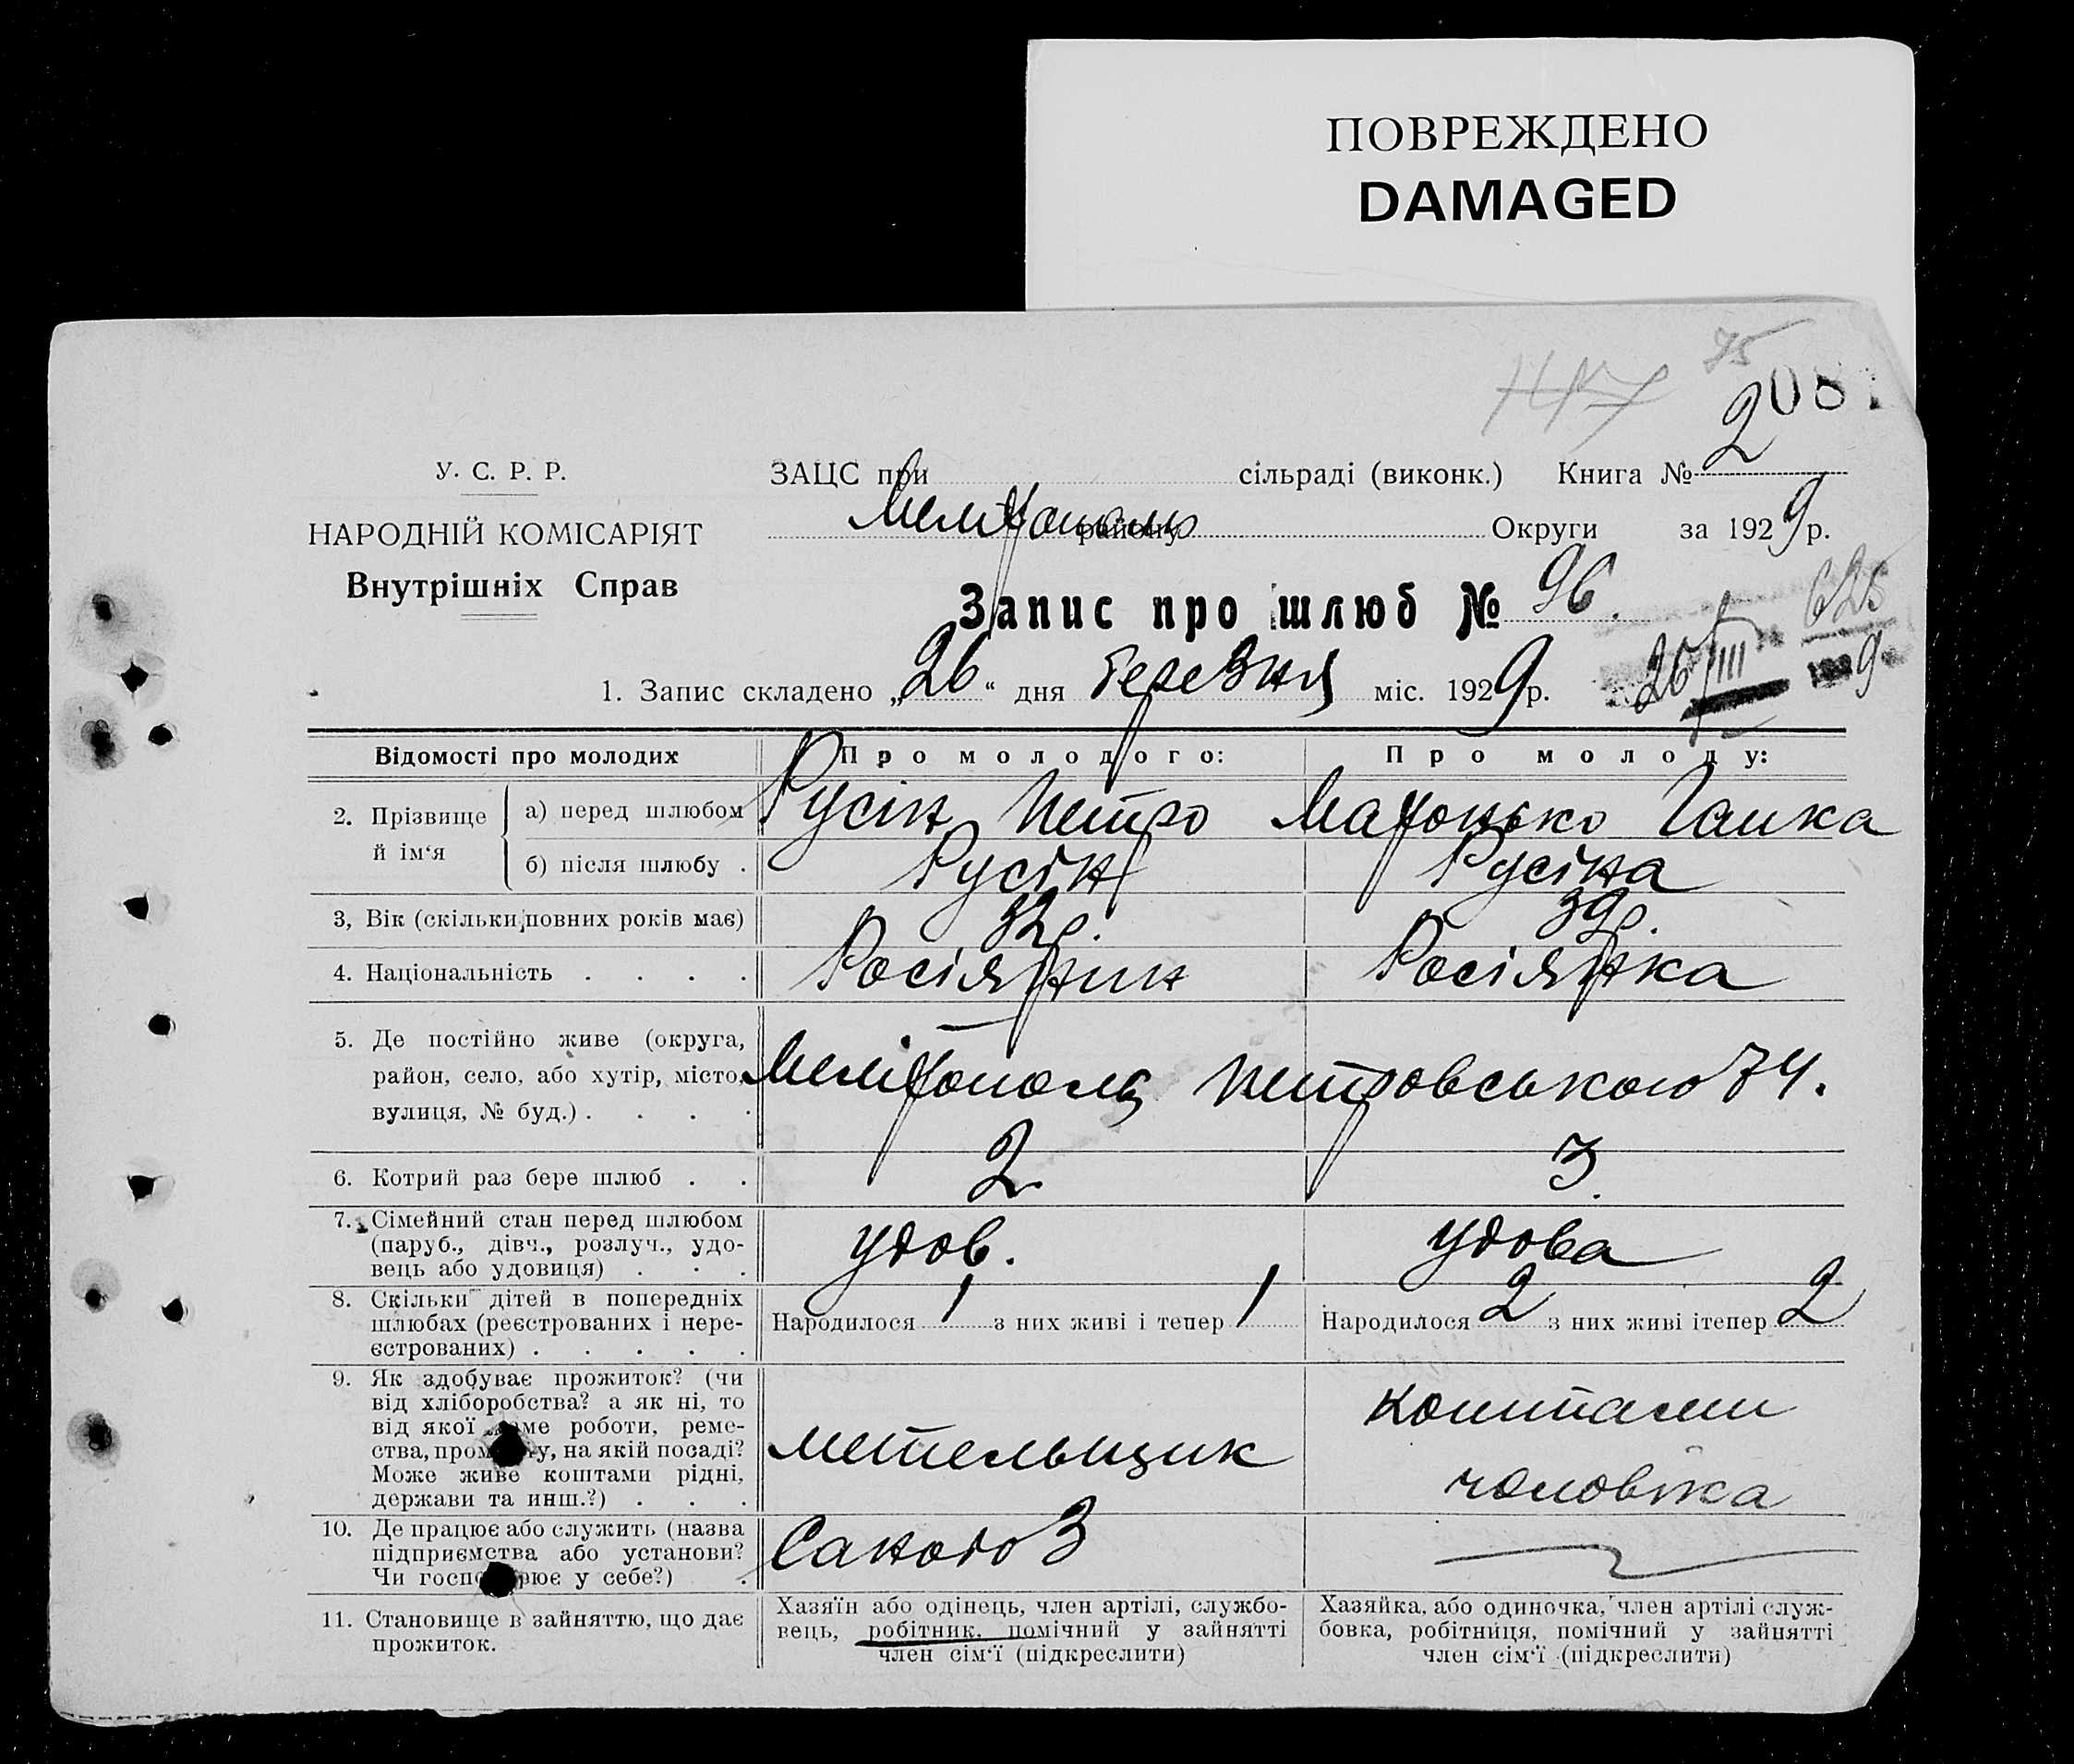 ПОВРЕЖДЕНО
DAMAGED
75
208
У. С. Р. Р.
НАРОДНІЙ КОМІСАРІЯТ
Внутрішніх Справ
ЗАЦС при сільраді (виконк.) Книга № 2
району Округи за 1929 р.
Запис про шлюб № 96.
1. Запис складено „26“ дня березня міс. 1929 р.
26/III 1929
Відомості про молодих
Про молодого:
Про молоду:
2. Прізвище й ім‘я
а) перед шлюбом
Русін Петро
Гашка
б) після шлюбу .
Русін
Русіна
3, Вік (скільки повних років має)
32 р.
39 р.
4. Національність . . . .
Росіянин
Росіянка
5. Де постійно живе (округа,
район, село, або хутір, місто,
вулиця, № буд.) . . . .
Меліторпль Петровською 74.
6. Котрий раз бере шлюб . .
2
3.
7. Сімейний стан перед шлюбом
(паруб., дівч., розлуч., удо-
вець або удовиця) . . .
удов.
удова
8. Скільки дітей в попередніх
шлюбах (реєстрованих і нере-
єстрованих) . . . . .
Народилося 1 з них живі і тепер 1
Народилося 2 з них живі ітепер 2
9. Як здобуває прожиток? (чи
від хліборобства? а як ні, то
від якої ме роботи, реме-
ства, пром у, на якій посаді?
Може живе коштами рідні,
держави та инш.?) . . .
метельщик
коштами
чоловіка
10. Де працює або служить (назва
підприємства або установи?
Чи госпо рює у себе?) .
11. Становище в зайняттю, що дає
прожиток.
Хазяїн або одінець, член артілі, службо-
вець, робітник, помічний у зайнятті
член сім‘ї (підкреслити)
Хазяйка, або одиночка, член артілі служ-
бовка, робітниця, помічний у зайнятті
член сім‘ї (підкреслити)